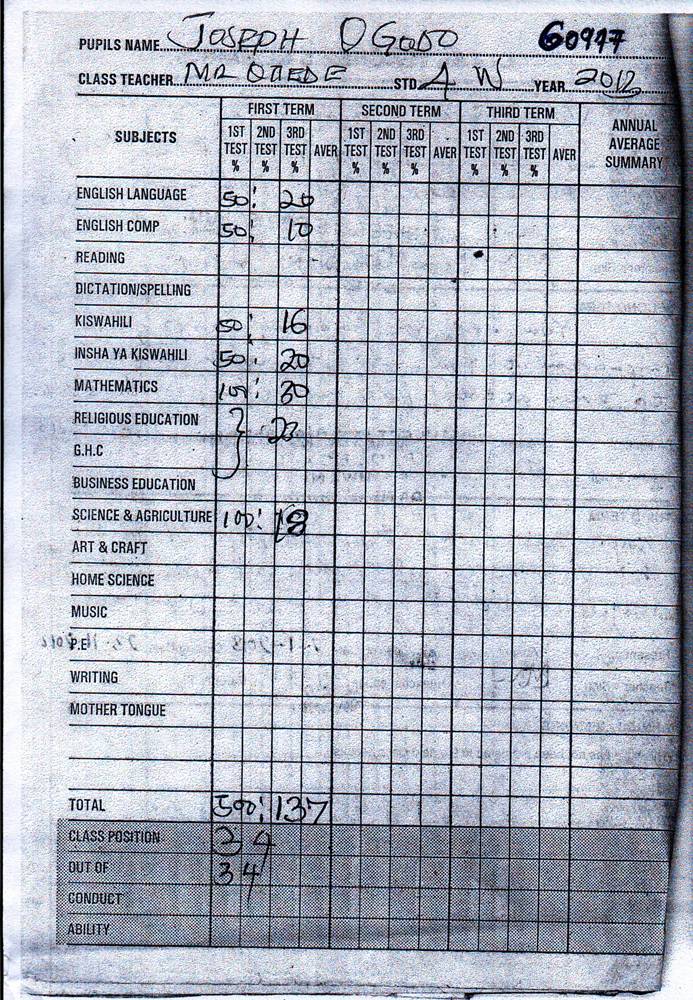 PUPILS NAME JOSEPH OGODO 60977
CLASS TEACHER MR OTEDE STD 4 W YEAR 2012
SUBJECTS FIRST TERM SECOND TERM THIRD TERM ANNUAL AVERAGE SUMMARY
1ST TEST % 2ND TEST % 3RD TEST % AVER 1ST TEST % 2ND TEST % 3RD TEST % AVER 1ST TEST % 2ND TEST % 3RD TEST % AVER
ENGLISH LANGUAGE 50: 20
ENGLISH COMP 50: 10
READING
DICTATION/SPELLING
KISWAHILI 50: 16
INSHA YA KISWAHILI 50: 20
MATHEMATICS 100: 30
RELIGIOUS EDUCATION 23
G.H.C
BUSINESS EDUCATION
SCIENCE & AGRICULTURE 100: 18
ART & CRAFT
HOME SCIENCE
MUSIC
P.E
WRITING
MOTHER TONGUE
TOTAL 500: 137
CLASS POSITION 34
OUT OF 34
CONDUCT
ABILITY